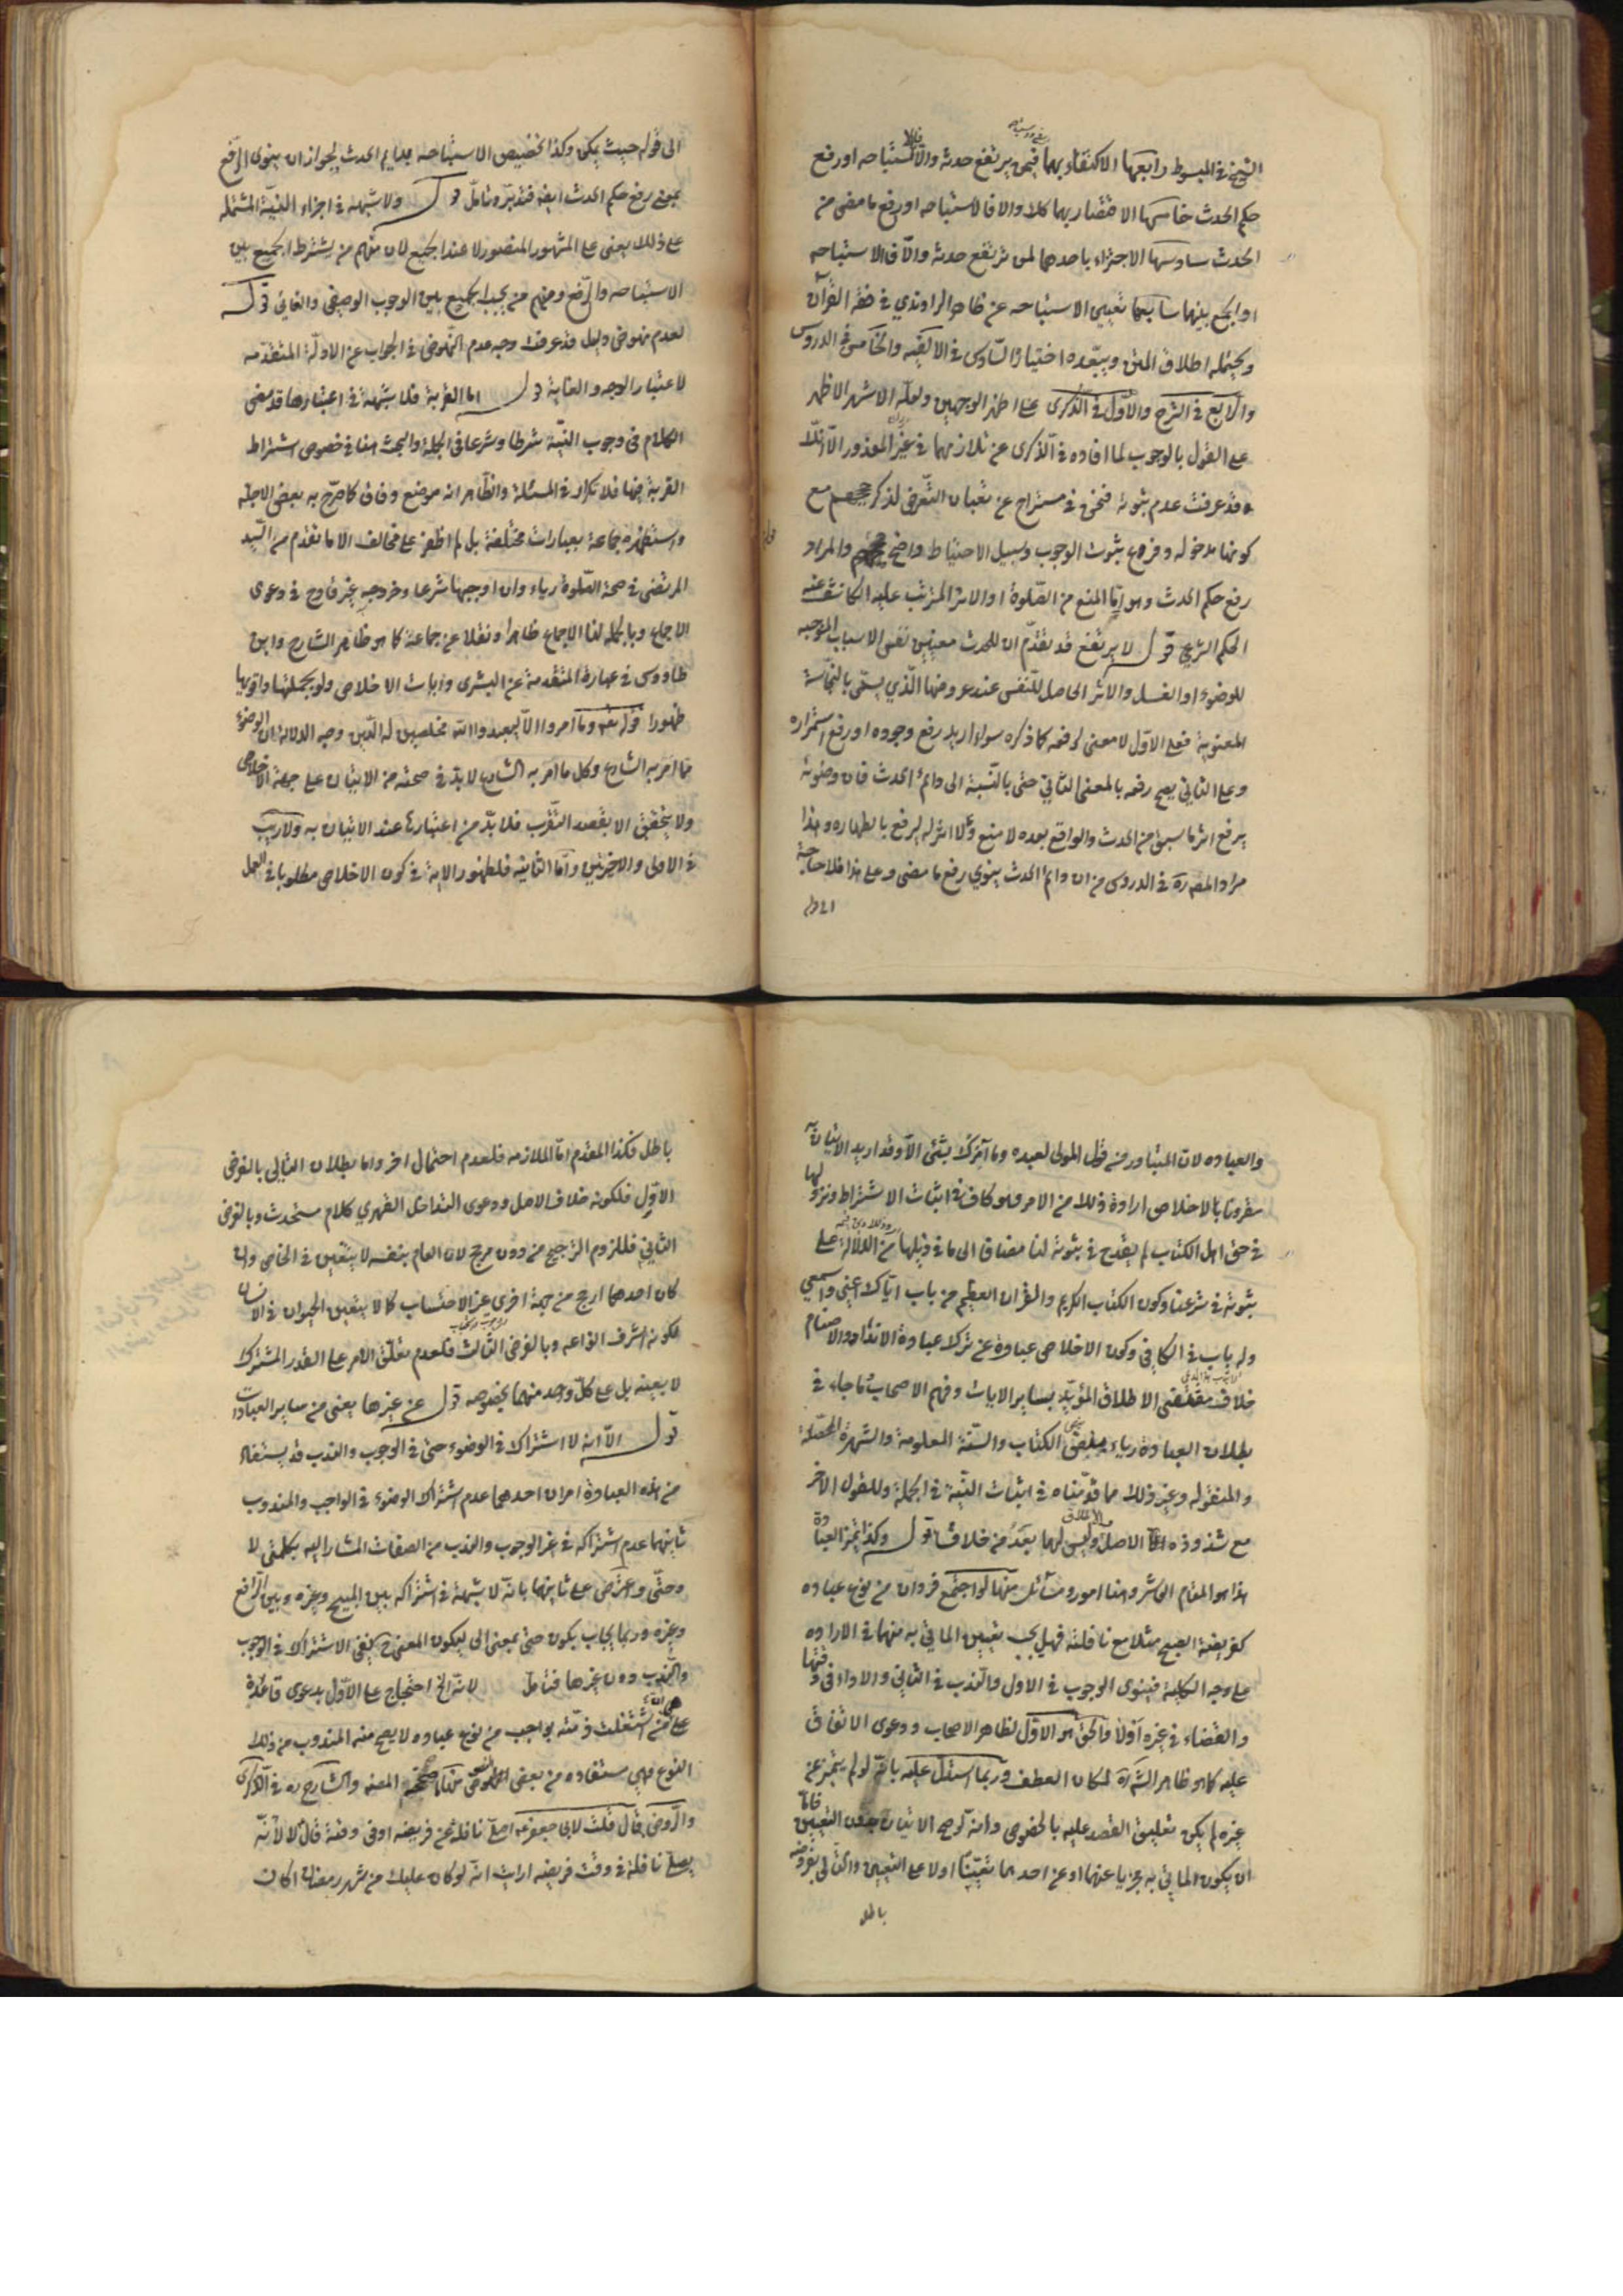 الشيخ في المبسوط رابعها الاكتفاء بهما فيمن يرتفع حدثه والا فالاستباحه او رفع
حكم الحدث خامسها الاقتصار بهما كلا والا فالاستباحه او رفع ما مضى من
الحدث سادسها الاجتزاء باحدهما لمن يرتفع حدثه والا فالاستباحه
او الجمع بينهما سابعها تعيين الاستباحه عن ظاهر الراوندي في فقه القرآن
ويحتمله اطلاق المتن ويبعّده اختيار السّادس في الالفيه والخامس في الدروس
والرّابع في الشرح والاوّل في الذّكرى على اظهر الوجهين ولعلّه الاشهر الاظهر
على القول بالوجوب لما افاده في الذّكرى عن تلازمهما في غير المعذور الّا انّك
قد عرفت عدم ثبوته فنحن في مستراح عن تعيان التّعرض لذكر مع
كونها مدخوله وفروع ثبوت الوجوب وسبيل الاحتياط واضح والمراد
رفع حكم الحدث وهو امّا المنع من الصّلوة او الاثر المترتب عليه الكاشف عنه
الحكم الشرعي قوله لا يرتفع قد تقدّم ان للحدث معنيين نفس الاسباب الموجبه
للوضوء او الغسل والاثر الحاصل للنّفس عند عروضها الّذي يسمّى بالنجاسة
المعنوية فعلى الاوّل لا معنى لرفعه كما ذكره سواء اريد رفع وجوده او رفع استمراره
وعلى الثاني يصح رفعه بالمعنى الثاني حتى بالنّسبة الى دائم الحدث فان وضوئه
يرفع اثر ما سبق من الحدث والواقع بعده لا منع ولا اثر له ليرفع بالطهاره وهذا
مراد المصره في الدروس من ان دائم الحدث ينوي رفع ما مضى وعلى هذا فلا حاجة
الى قوله
الى قوله حيث يكن وكذا تخصيص الاستباحه بدايم الحدث لجواز ان ينوى الرّفع
بمعنى رفع حكم الحدث ايضا فتدبّر وتأمّل قوله ولا شبهه في اجزاء النيّة المشتمله
على ذلك يعنى على المشهور المنصور لا عند الجميع لان منهم من يشترط الجميع بين
الاستباحه والرّفع ومنهم من يجب الجميع بين الوجوب الوصفى والغائى قوله
لعدم نهوض دليل قد عرفت وجه عدم النّهوض في الجواب عن الادلّة المتقدّمه
لاعتبار الوجه والغاية قوله اما القربة فلا شبهة في اعتبارها قد مضى
الكلام في وجوب النيّة شرطا وشرعا في الجملة والبحث هنا في خصوص اشتراط
القربة فيها فلا تكرار في المسئلة والظّاهر انه موضع وفاق كما صرّح به بعض الاجلّه
واستظهره جماعة بعبارات مختلفة بل لم اظفر على مخالف الا ما تقدم من السّيد
المرتضى في صحة الصّلوة رياء وان اوجبها شرعا وخروجه غير قادح في دعوى
الاجماع وبالجمله لنا الاجماع ظاهرا ونقلا عن جماعة كما هو ظاهر الشارح وابن
طاووس في عبارة المتقدمة عن البشرى وايات الاخلاص ولو بجملتها واقويها
ظهورا قوله تعه وما امروا الّا ليعبدوا الله مخلصين له الدّين وجه الدلالة ان الوضوء
ممّا امر به الشارع وكل ما امر به الشارع لا بدّ في صحته من الاتيان على جهة الاخلاص
ولا يتحقق الا بقصد التقرب فلا بدّ من اعتبارها عند الاتيان به ولا ريب
في الاولى والاخرتين وامّا الثانية فلظهور الاية في كون الاخلاص مطلوبا في العمل
والعباده لان المتبادر من قول المولى لعبده وما آمرك بشئ الّا وقد اريد الاتيان به
مقرونا بالاخلاص ارادة ذلك من الامر وهو كاف في اثبات الاشتراط ونزولها
في حق اهل الكتاب لم يقدح في ثبوته لنا مضافا الى ما في ذيلها من الدّلالة على
ثبوته في شرعنا وكون الكتاب الكريم والقران العظيم من باب ايّاك اعنى واسمعى
وله باب في الكافي وكون الاخلاص عبارة عن ترك عبادة الانداد والاصنام
خلاف مقتضى الاطلاق المؤيّد بساير الايات وفهم الاصحاب ما جاء في
بطلان العبادة رياء بنصّ الكتاب والسنّة المعلومة والشهرة المحقّقة
والمنقوله وغير ذلك مما قدّمناه في اثبات النيّة في الجملة وللقول الاخر
مع شذوذه الاصل والاطلاق وليس لهما بعد من خلاف قوله وكذا تميز العبادة
هذا هو المقام العاشر وهنا امور ومسائل منها لو اجتمع فردان من نوع عباده
كفريضة الصبح مثلا مع نافلته فهل يجب تعيين الماتي به منهما في الاراده
على وجه الكليّة فينوى الوجوب في الاول والنّدب في الثاني والاداء في وقتها
والقضاء في غيره اَوْلا والحق هو الاوّل لظاهر الاصحاب ودعوى الاتفاق
عليه كما هو ظاهر الشّره لمكان العطف وربما استدل عليه بانّه لو لم يتميّز عن
غيره لم يكن تعليق القصد عليه بالخصوص وانه لو صح الاتيان بدون التعيين فاما
ان يكون الماتي به مجزيا عنهما او عن احدهما تعيّنا او لا على التعيين والتّالى بفروضه
باطل
باطل فكذا المقدّم امّا الملازمه فلعدم احتمال اخر واما بطلان التالى بالفرض
الاوّل فلكونه خلاف الاصل ودعوى التداخل القهري كلام مستحدث وبالفرض
الثاني فللزوم الترجيح من دون مرجح لان العام بنفسه لا يتعين في الخاص وان
كان احدهما ارجح من جهة اخرى غير الاحتساب كما لا يتعين الحيوان في الانسان
لكونه اشرف انواعه وبالفرض الثّالث فلعدم تعلّق الامر على القدر المشترك
لا بعينه بل على كلّ واحد منهما بخصوصه قوله عن غيرها يعنى من ساير العبادات
قوله الّا انه لا اشتراك في الوضوء حتى في الوجوب والندب قد يستفاد
من هذه العبارة امران احدهما عدم اشتراك الوضوء في الواجب والمندوب
ثانيهما عدم اشتراكه في غير الوجوب والندب من الصفات المشار اليه بكلمتى لا
وحتّى واعترض على ثانيهما بانّه لا شبهة في اشتراكه بين المبيح وغيره وبين الرّافع
وغيره وربما يجاب بكون حتى بمعنى الى ليكون المعنى ح نفى الاشتراك في الوجوب
والنّدب دون غيرها فتأمّل لانّه الخ احتجاج على الاوّل بدعوى قاعدة
على ان من اشتغلت ذمّته بواجب من نوع عباده لا يصح منه المندوب من ذلك
النوع وهي مستفاده من بعض النصوص المصنه والشارح ره في الذّكرى
والرّوض قال قلت لابى جعفر عه اصلّى نافلة وعلىّ فريضه او في وقت فريضة قال لا لانّه
يصلّى نافلة في وقت فريضه ارايت انّه لو كان عليك من شهر رمضان اكان